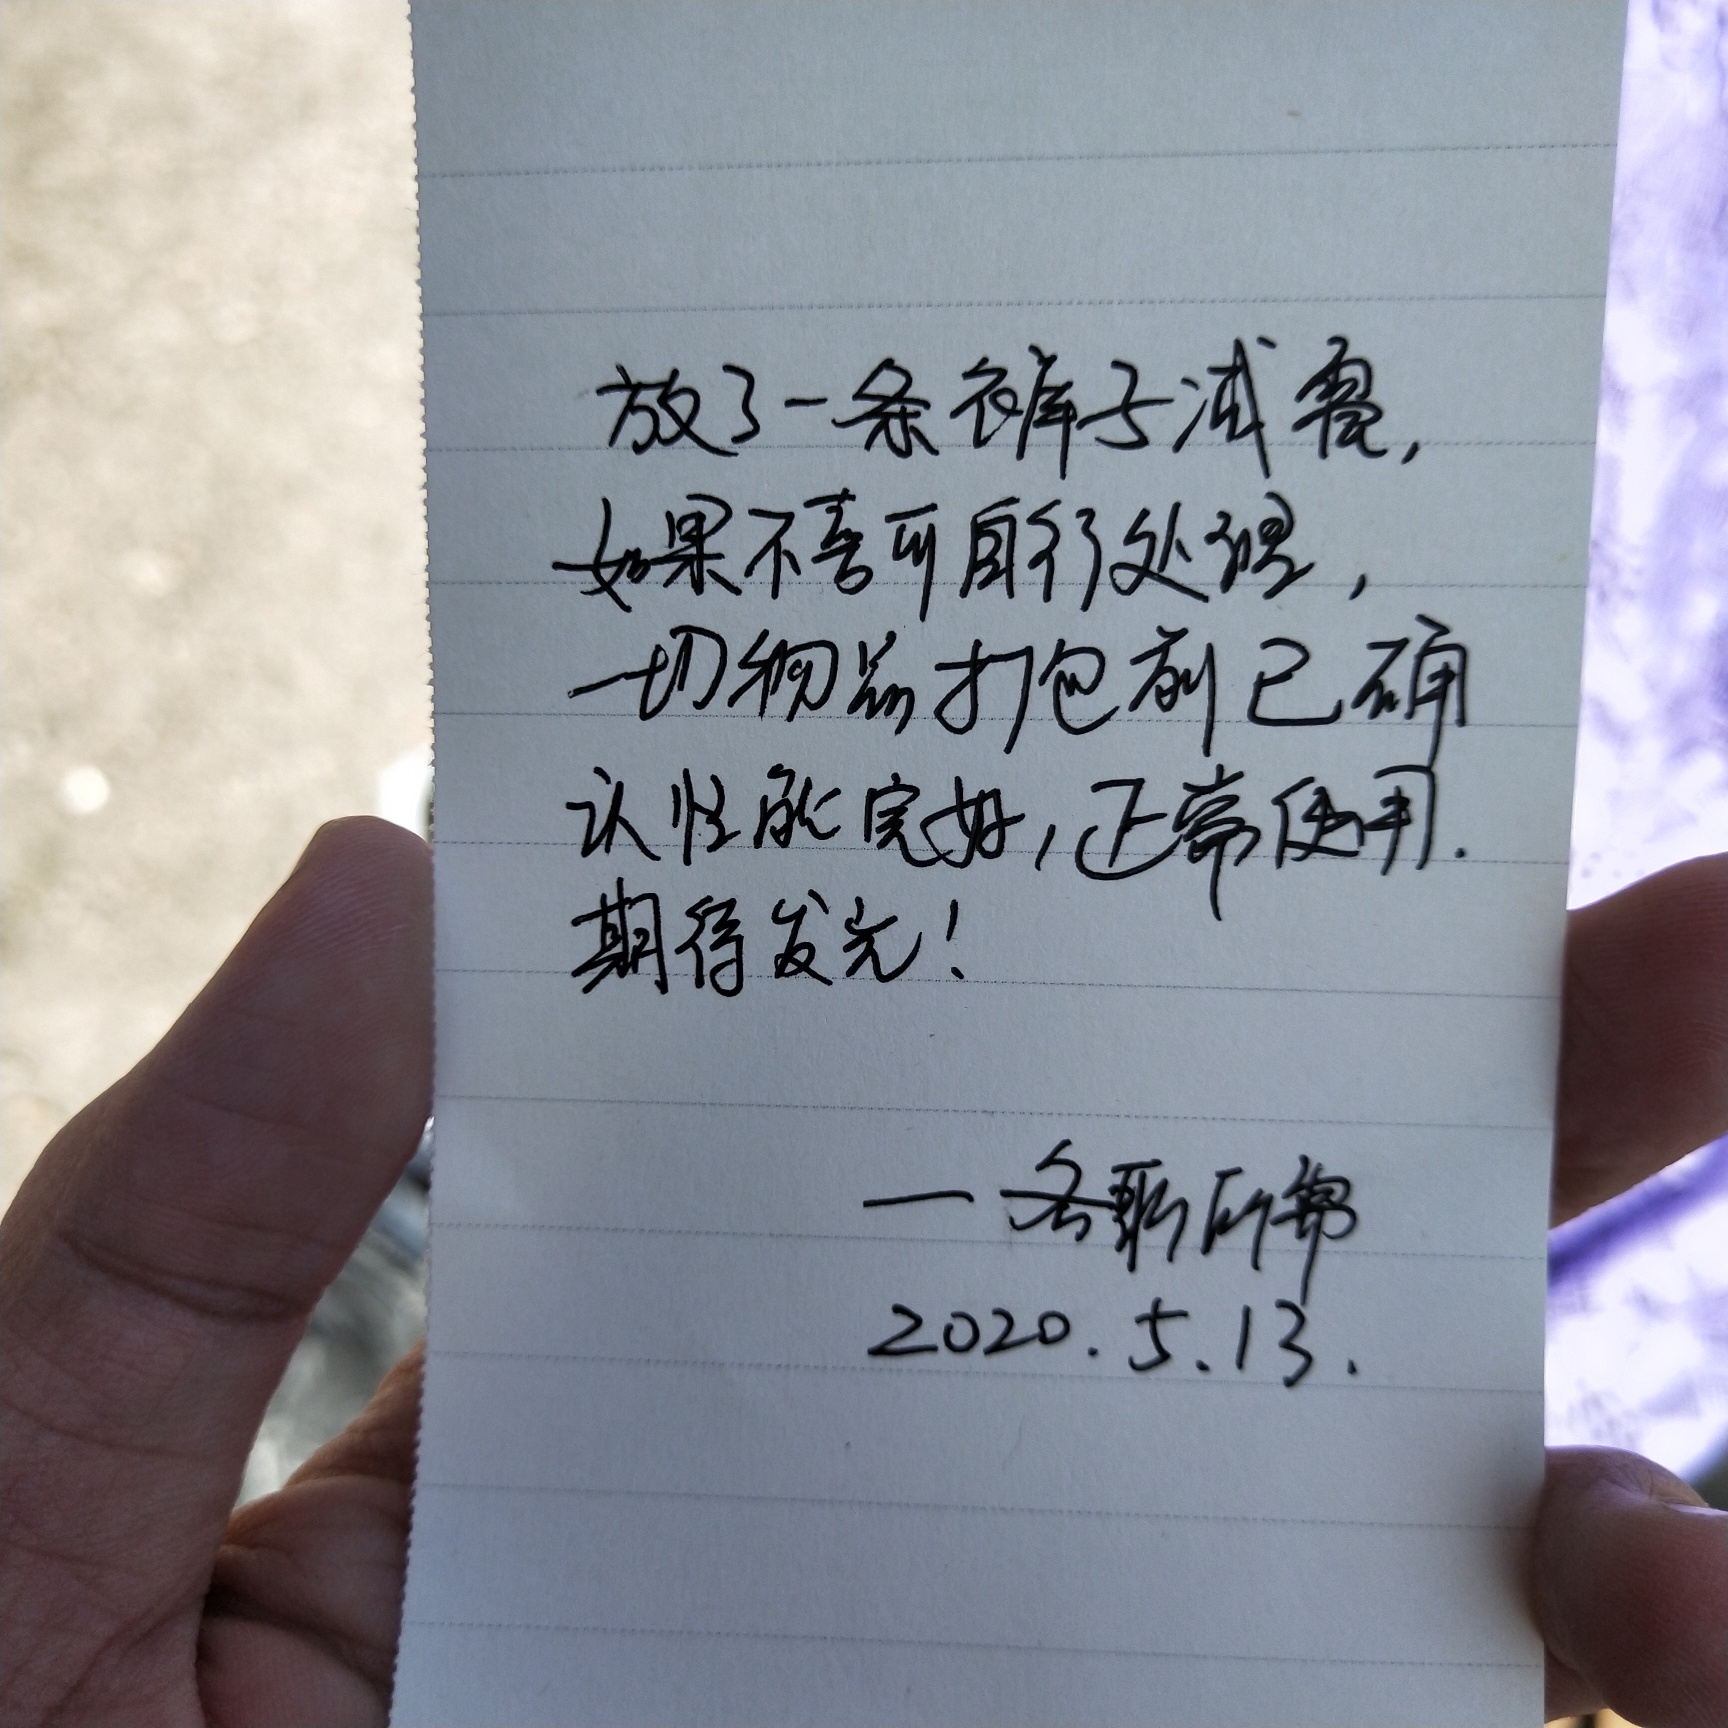 放了一条裤子减震,
如果不喜可自行处理,
一切物品打包前已确
认性能完好,正常使用.
期待发光!
一条
2020.5.13.